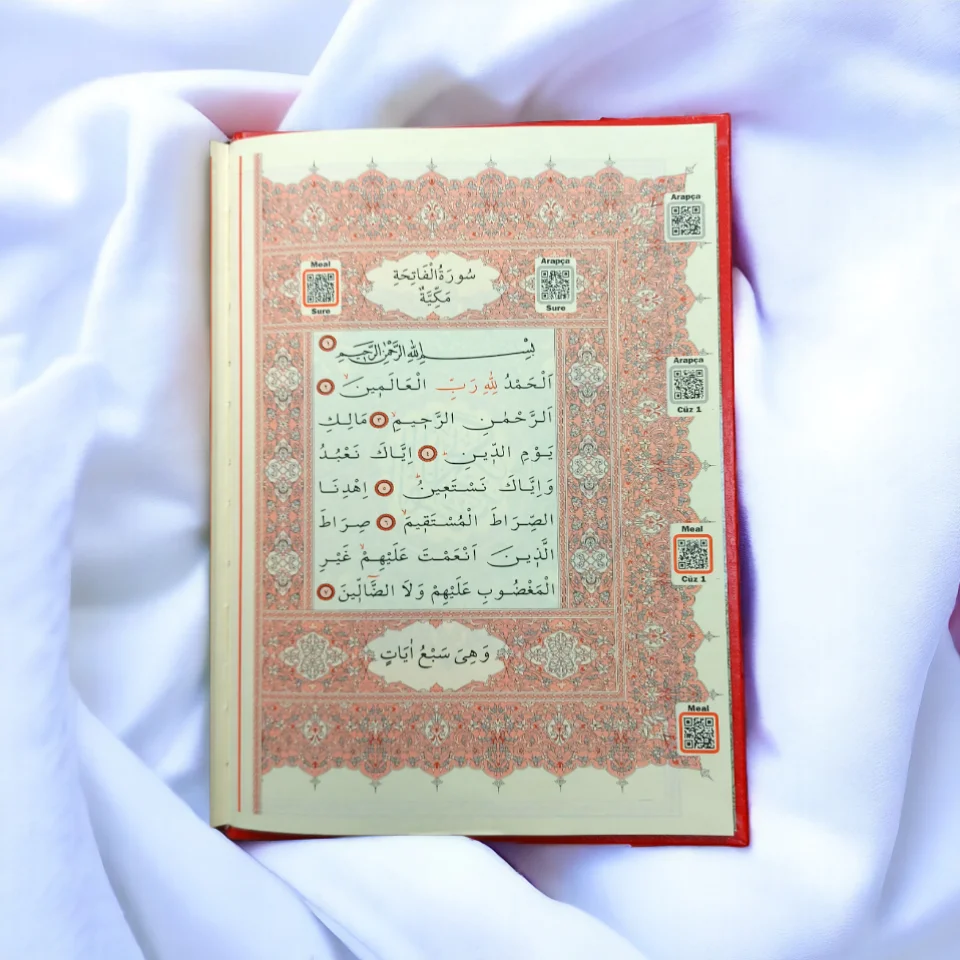 Arapça
Meal
Sure
سُورَةُ الْفَاتِحَةِ
مَكِّيَّةٌ
Arapça
Sure
بِسْــــــمِ اللّٰهِ الرَّحْمٰنِ الرَّحِيمِ ١
اَلْحَمْدُ لِلّٰهِ رَبِّ الْعَالَمِينَۙ ٢
اَلرَّحْمٰنِ الرَّحِيمِۙ ٣ مَالِكِ
يَوْمِ الدِّينِۜ ٤ اِيَّاكَ نَعْبُدُ
وَاِيَّاكَ نَسْتَعِينُۜ ٥ اِهْدِنَا
الصِّرَاطَ الْمُسْتَقِيمَۙ ٦ صِرَاطَ
الَّذِينَ اَنْعَمْتَ عَلَيْهِمْۙ غَيْرِ
الْمَغْضُوبِ عَلَيْهِمْ وَلَا الضَّٓالِّينَ ٧
وَهِىَ سَبْعُ اٰيَاتٍ
Arapça
Cüz 1
Meal
Cüz 1
Meal